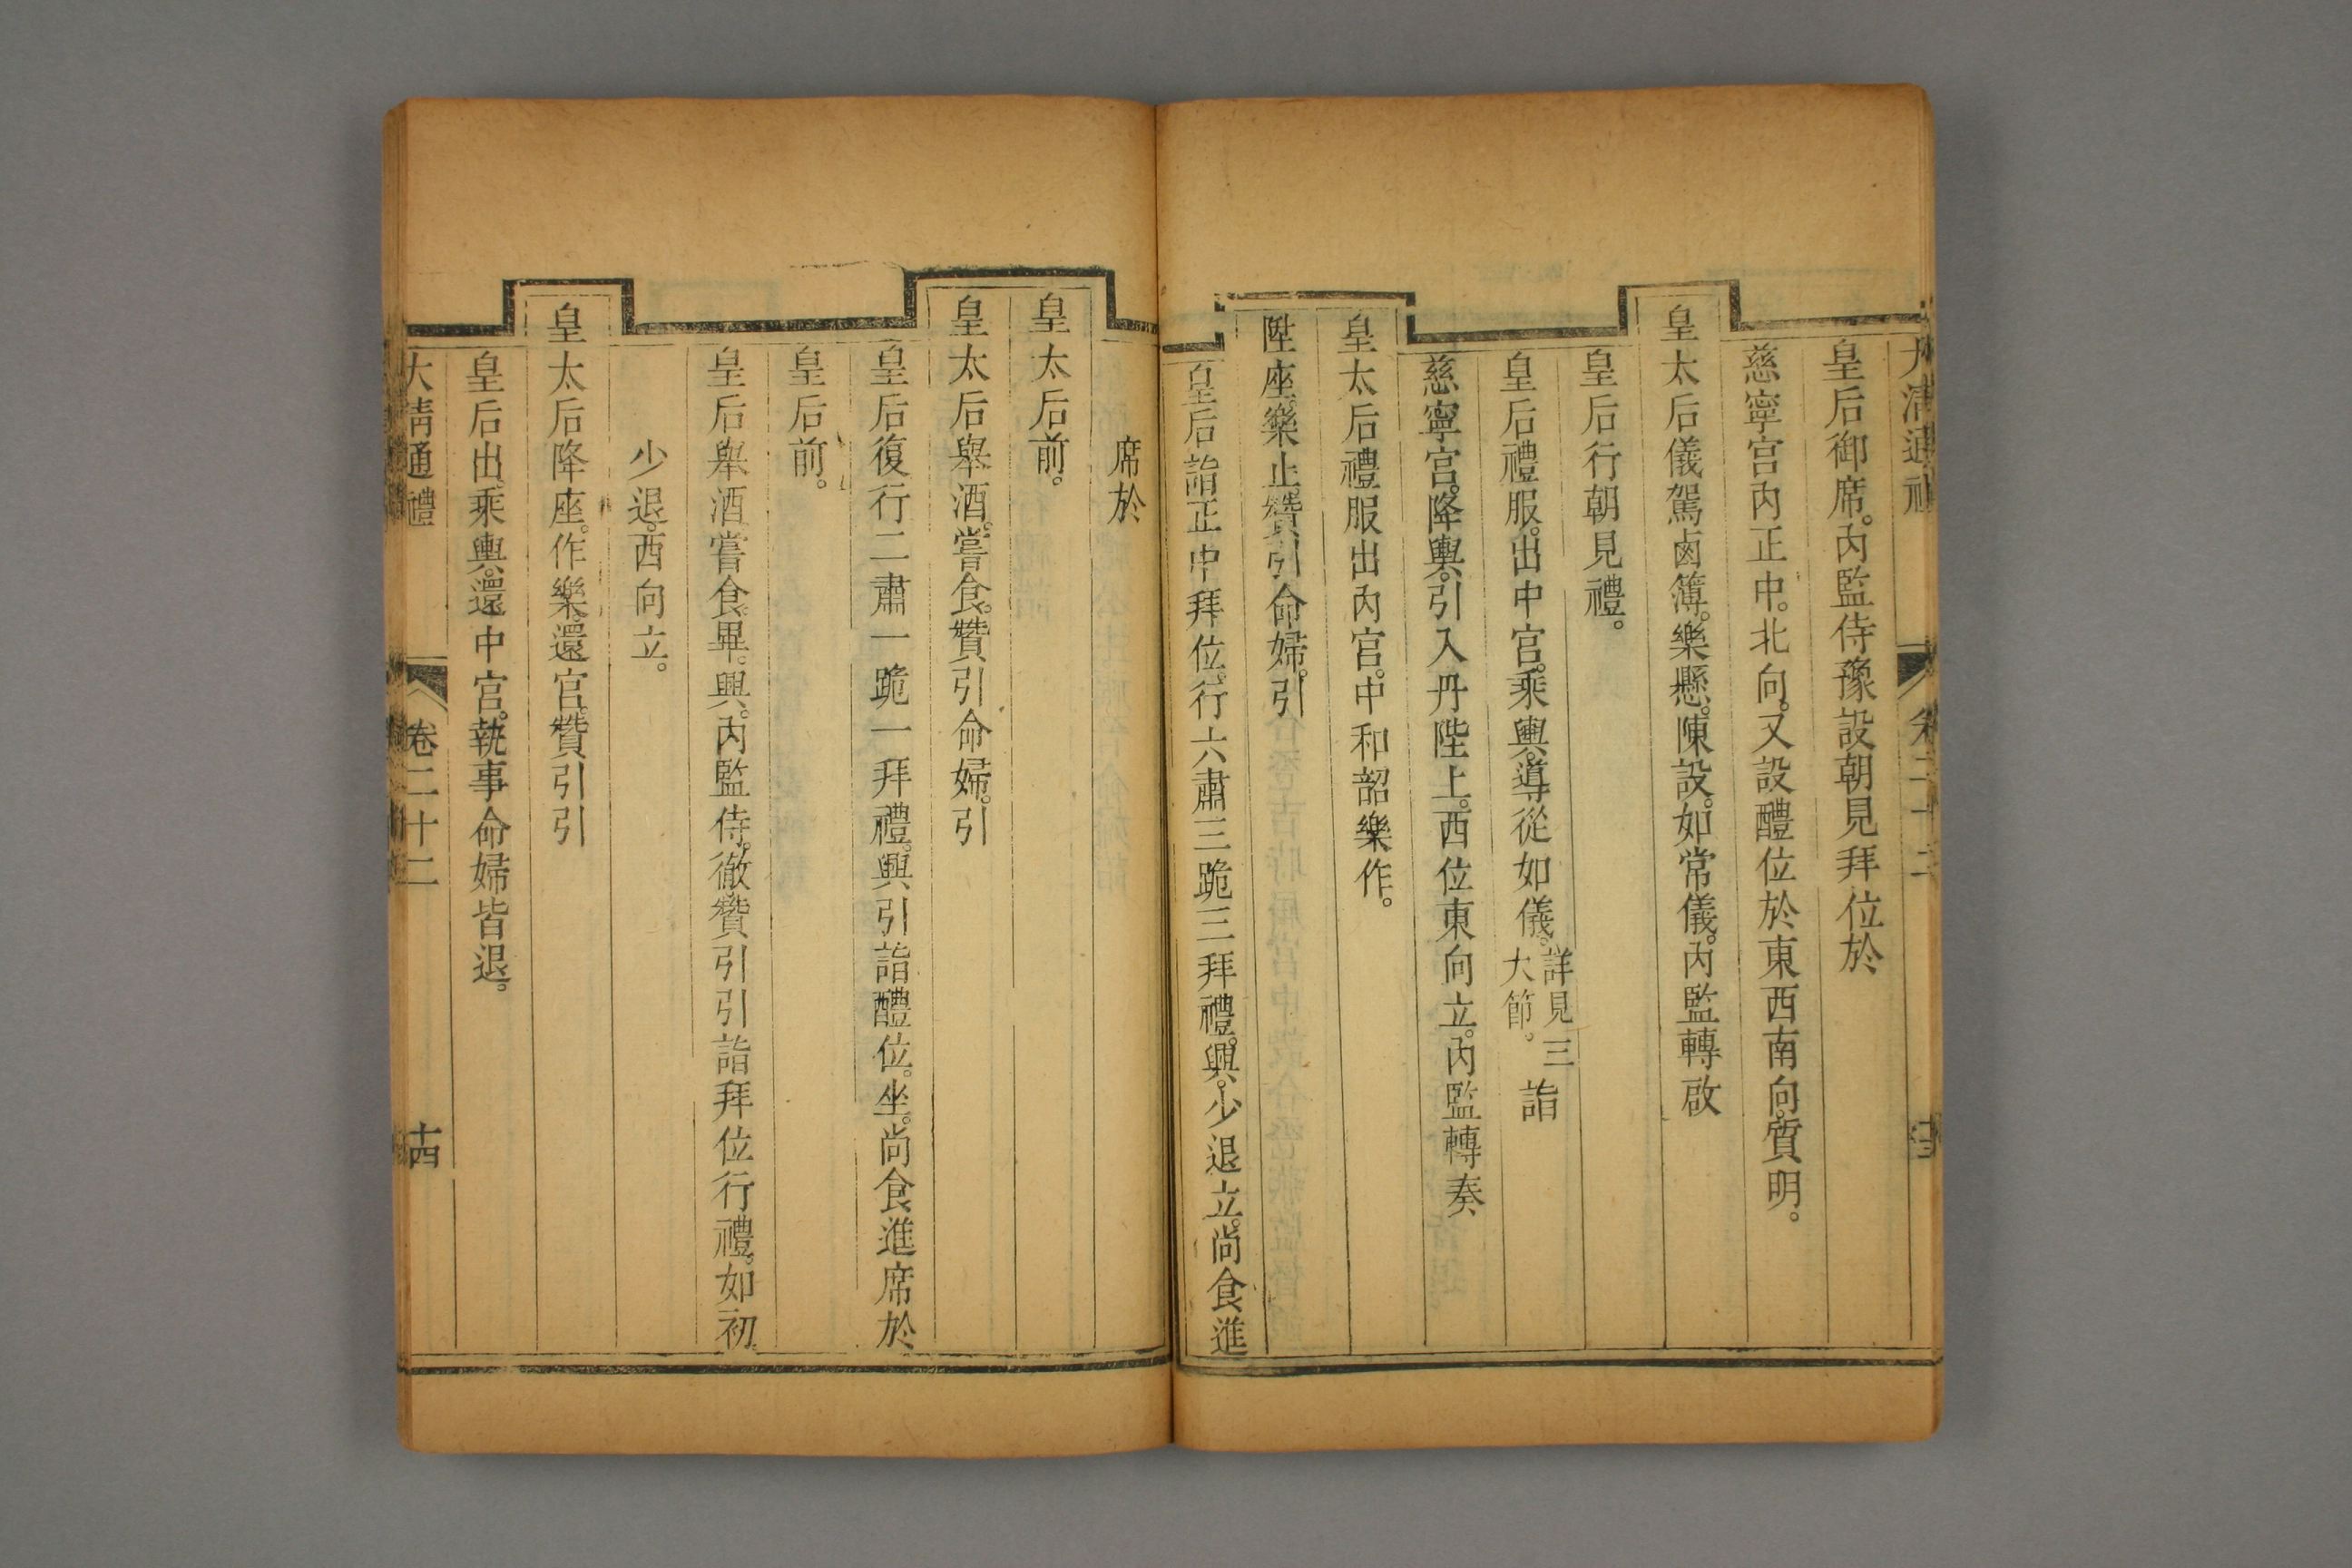 大清通禮 卷二十二
皇后御席。內監侍豫設朝見拜位於
慈寧宮內正中。北向。又設醴位於東西南向。質明。
皇太后儀駕鹵簿。樂懸。陳設。如常儀。內監轉啟
皇后行朝見禮。
皇后禮服。出中宮。乘輿。導從如儀。詳見三大節。詣
慈寧宮。降輿。引入丹陛上。西位東向立。內監轉奏
皇太后禮服出內宮。中和韶樂作。
陞座。樂止。贊引命婦。引
皇后詣正中拜位。行六肅三跪三拜禮。興。少退立。尚食進
席於
皇太后前。
皇太后舉酒。嘗食。贊引命婦。引
皇后復行二肅一跪一拜禮。興。引詣醴位。坐。尚食進席於
皇后前。
皇后舉酒嘗食。畢。興。內監侍。徹。贊引引詣拜位行禮。如初
少退。西向立。
皇太后降座。作樂。還宮。贊引引
皇后出。乘輿。還中宮。執事命婦皆退。
大清通禮 卷二十二 十四